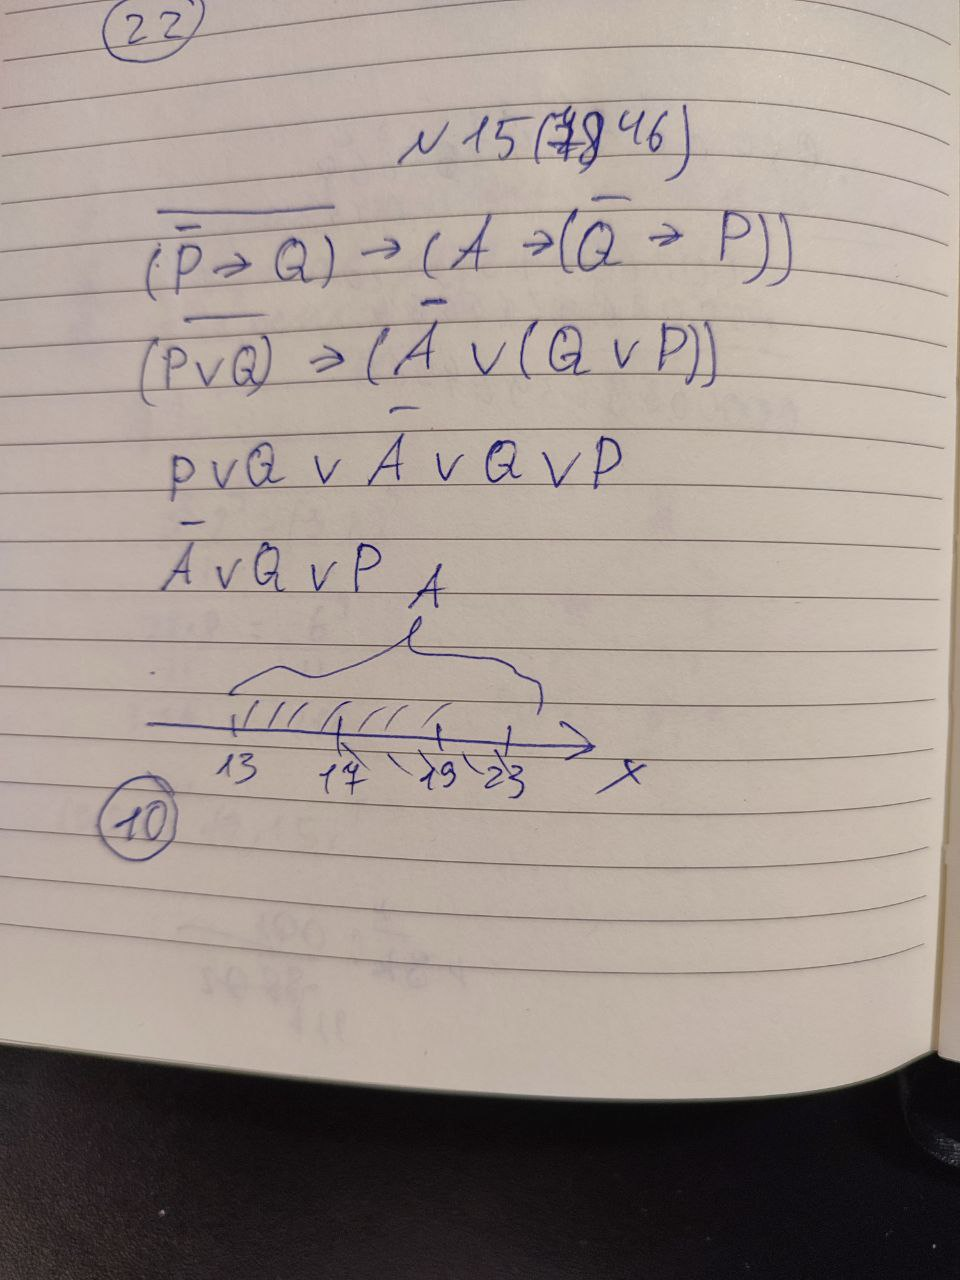 22
№ 15 (7846)
(P̅ → Q)̅ → (A → (Q̅ → P))
(P∨Q)̅ → (A̅ ∨ (Q ∨ P))
P ∨ Q ∨ A̅ ∨ Q ∨ P
A̅ ∨ Q ∨ P
A
13 17 19 23 x
10